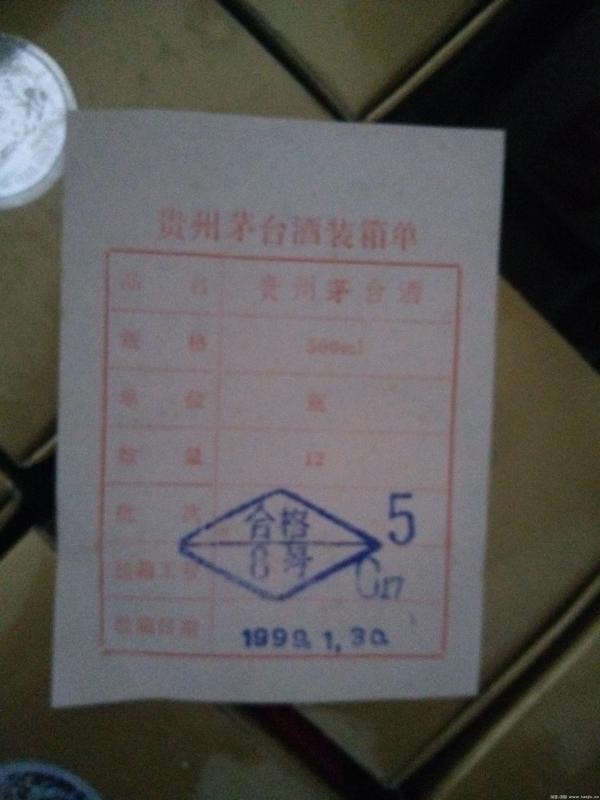 贵州茅台酒装箱单
品 名 贵州茅台酒
规 格 500ml
单 位 瓶
数 量 12
批 次 5
合格
8号
装箱工号 C17
装箱日期 1999.1,30.